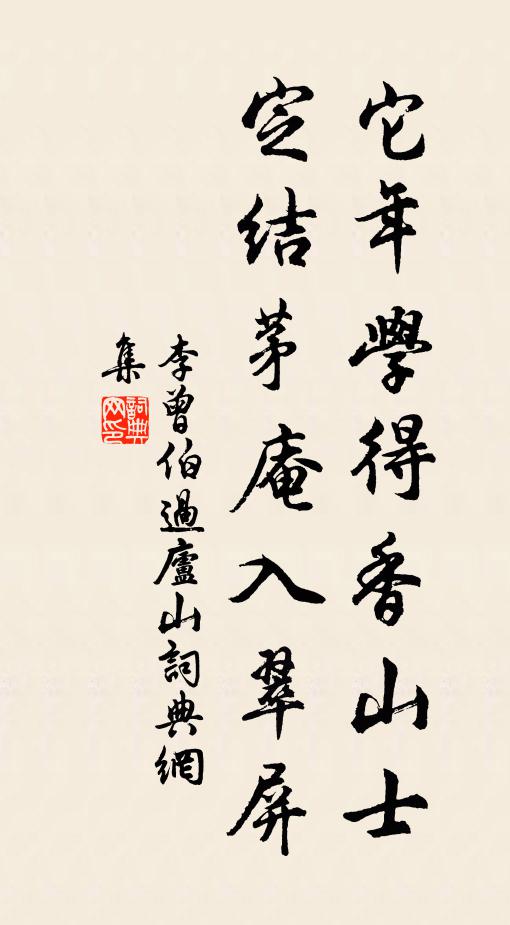 它年學得香山士
定结茅庵入翠屏
李曾伯過廬山詞典網
集
詞典
网印